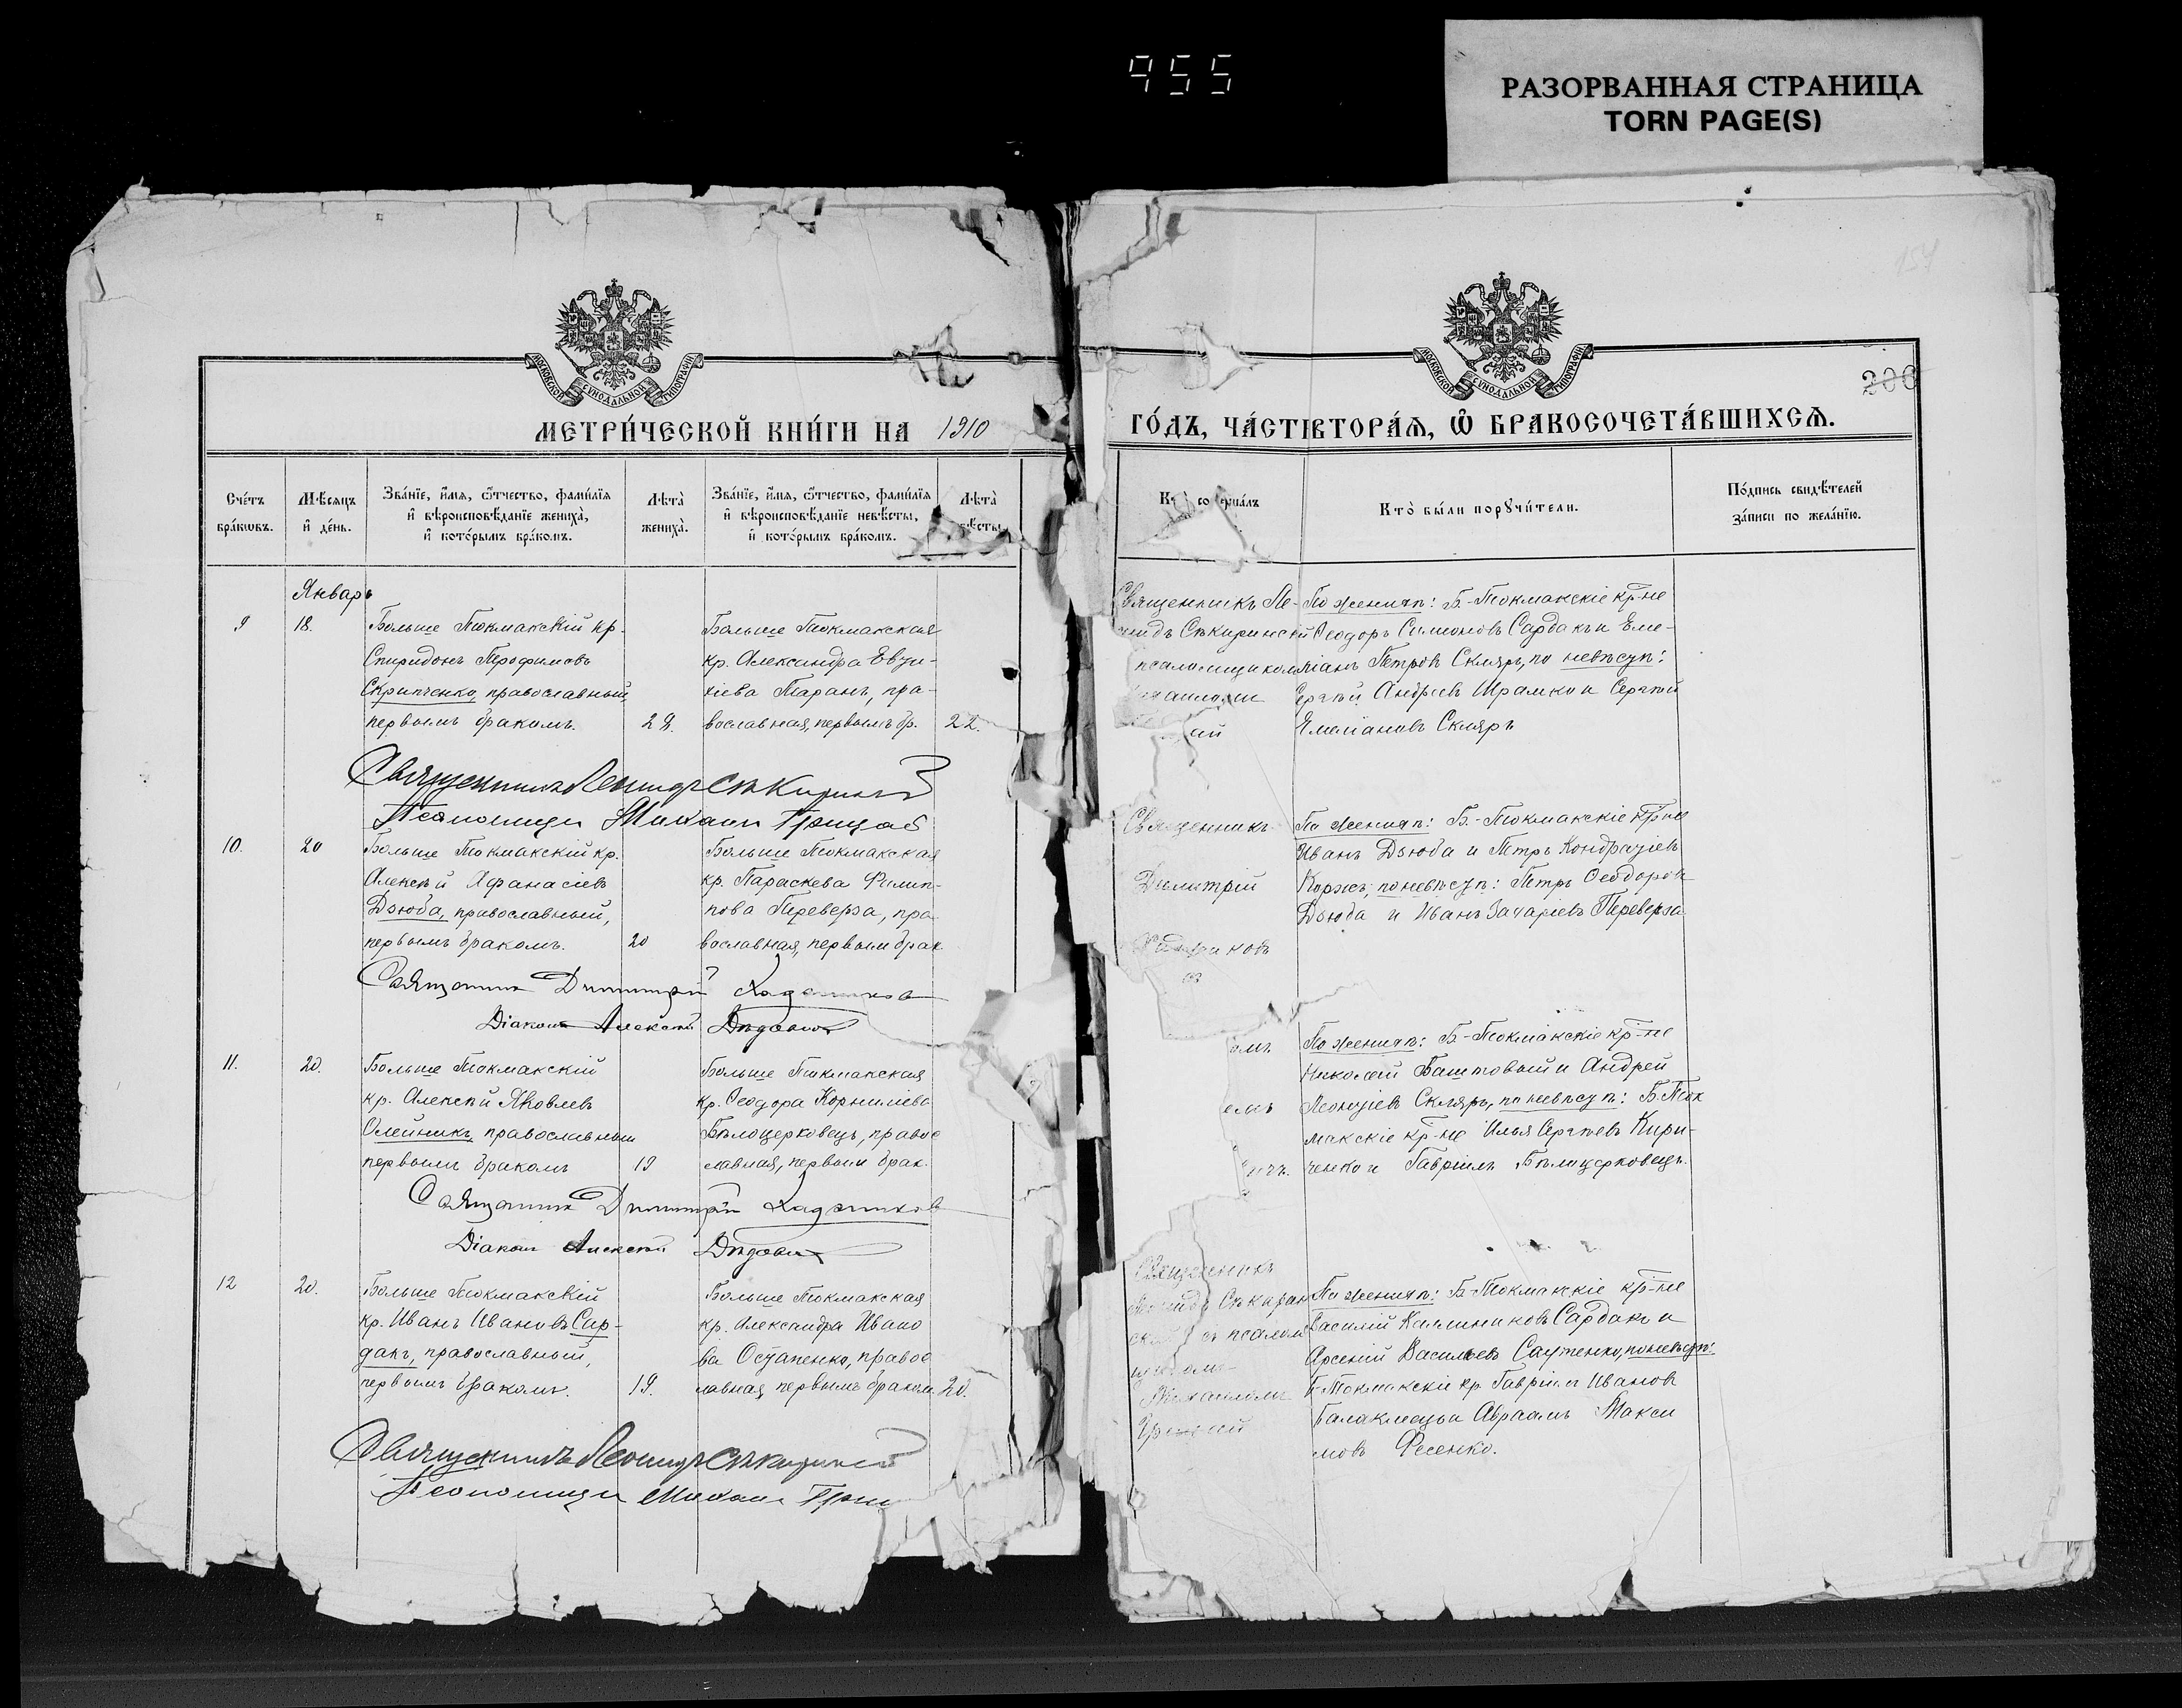 955
РАЗОРВАННАЯ СТРАНИЦА
TORN PAGE(S)
154
200
МОСКОВСКОЙ СѴНОДАЛЬНОЙ ТИПОГРАФІИ
МОСКОВСКОЙ СѴНОДАЛЬНОЙ ТИПОГРАФІИ
МЕТРИ́ЧЕСКОЙ КНИ́ГИ НА 1910
ГО́ДЪ, ЧА́СТЬ ВТОРА́Ѧ, Ѿ БРАКОСОЧЕТА́ВШИХСѦ.
Сче́тъ
бра́кѡвъ.
Мѣ́сяцъ
и҆ де́нь.
Зва́нїе, и҆́мя, ѻ҆́тчество, фами́лїя
и҆ вѣроисповѣ́данїе жениха̀,
и҆ кото́рымъ бра́комъ.
Лѣта̀
жениха̀.
Зва́нїе, и҆́мя, ѻ҆́тчество, фами́лїя
и҆ вѣроисповѣ́данїе невѣ́сты,
и҆ кото́рымъ бра́комъ.
Лѣта̀
вѣ́сты
Кт со рша́лъ
Кто̀ бы́ли порꙋчи́тели.
По́дпись свидѣ́телей
за́писи по жела́нїю.
Январь
9 18.
Больше Токмакскій кр.
Спиридонъ Трофимовъ
Скрипченко, православный,
первымъ бракомъ. 29.
Больше Токмакская
кр. Александра Евѳи-
хіева Таранъ, пра-
вославная, первымъ бр. 22.
Священникъ Ле-
нидъ Сѣкиринскій
псаломщикомъ
ий
По женихѣ: Б.-Токмакскіе кр-не
Ѳеодоръ Симоновъ Сардакъ и Еме-
ліанъ Петровъ Скляръ, по невѣстѣ:
Сергѣй Андреевъ Шрамко и Сергѣй
Емеліановъ Скляръ
Священникъ Леонидъ Сѣкиринскій
Псаломщикъ Михаилъ Грицай
10. 20
Больше Токмакскій кр.
Алексѣй Аѳанасіевъ
Дзюба, православный,
первымъ бракомъ. 20
Больше Токмакская
кр. Параскева Филип-
пова Переверза, пра
вославная, первымъ брак
Священникъ
Димитрій
По женихѣ: Б.-Токмакскіе кр-не
Иванъ Дзюба и Петръ Кондратіевъ
Коржъ, по невѣстѣ: Петръ Ѳеодоровъ
Дзюба и Иванъ Захаріевъ Переверза
Священникъ Димитрій Хаджиковъ
Діаконъ Алексѣй
11. 20.
Больше Токмакскій
кр. Алексѣй Яковлевъ
Олейникъ, православный
первымъ бракомъ 19
Больше Токмакская
кр. Ѳеодора Корнилieва
Бѣлоцерковецъ, правос
лавная, первымъ брак.
омъ
емъ
ичъ.
По женихѣ: Б-Токмакскіе кр-не
Николай Баштовый и Андрей
Леонтіевъ Скляръ, по невѣстѣ: Б. Ток
макскіе кр-не Илья Сергѣевъ Кири-
ченко и Гавріилъ Бѣлоцерковецъ.
Священникъ Димитрій Хаджиковъ
Діаконъ Алексѣй
12 20.
Больше Токмакскій
кр. Иванъ Ивановъ Сар-
дакъ, православный,
первымъ бракомъ. 19.
Больше Токмакская
кр. Александра Ивано
ва Остапенко, правос
лавная первымъ бракомъ 20.
Священникъ
Леонидъ Сѣкирин
скій съ псалом
щикомъ
Михаиломъ
По женихѣ: Б-Токмакскіе кр-не
Василій Калиниковъ Сардакъ и
Арсеній Васильевъ Саутенко, по невѣстѣ:
Б-Токмакскіе кр. Гавріилъ Ивановъ
Балаклеецъ и Авраамъ Макси
мовъ Фесенко.
Священникъ Леонидъ Сѣкиринскій
Псаломщикъ Михаилъ Гриц